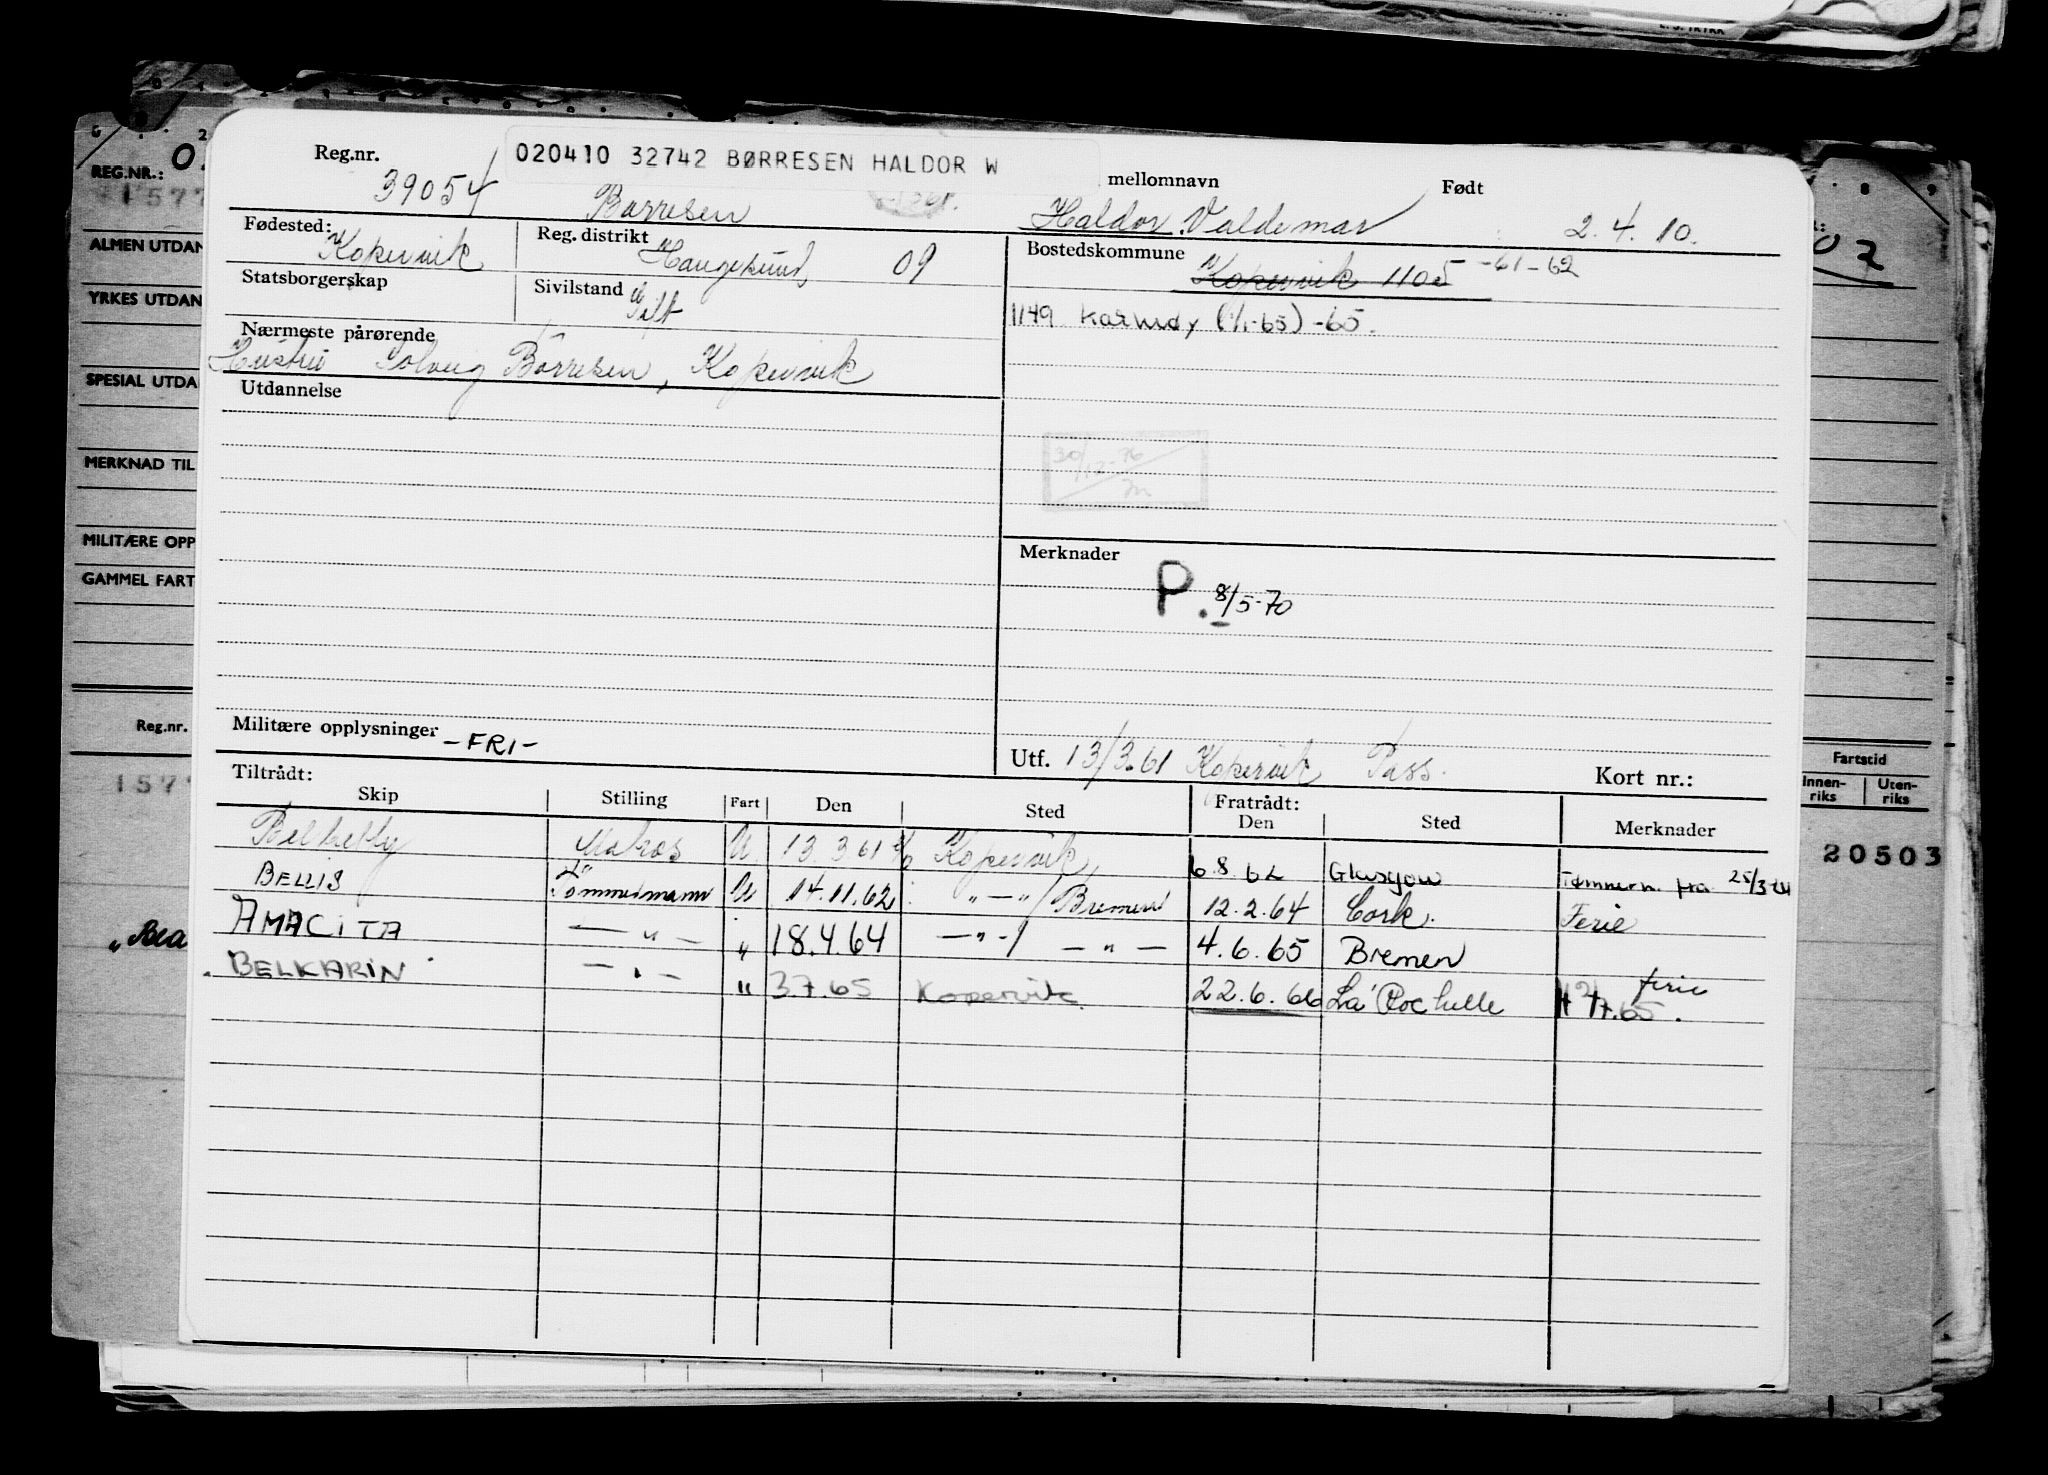 REG.NR.:
Reg.nr. 020410 32742 BØRRESEN HALDOR W mellomnavn Født
39054 Børresen Haldor Valdemar 2.4.10.
Fødested: Kopervik Reg. distrikt Haugesund 09 Bostedskommune Kopervik 1105 -61-62
Statsborgerskap Sivilstand Gift 1149 Karmøy (1/1-65) -65.
Nærmeste pårørende
Hustru Solveig Børresen, Kopervik
Utdannelse
30/12-76
Merknader
P. 8/5-70
Militære opplysninger -FRI-
Utf. 13/3.61 Kopervik Pass. Kort nr.:
Tiltrådt: Fratrådt:
Skip Stilling Fart Den Sted Den Sted Merknader
Belhetty Matros U 13.3.61 Kopervik 6.8.62 Glasgow Tømmerm. fra
BELLIS Tømmermann U 14.11.62 " — " / Bremen 12.2.64 Cork. Ferie
AMACITA — " — " 18.4.64 — " - / — " — 4.6.65 Bremen
BELKARIN — " — " 3.7.65 Kopervik. 22.6.66 La Rochelle ferie
ALMEN UTDAN
YRKES UTDAN
SPESIAL UTDA
MERKNAD TIL
MILITÆRE OPP
GAMMEL FART
Reg.nr.
1577
Fartstid
Innen-riks Uten-riks
20503